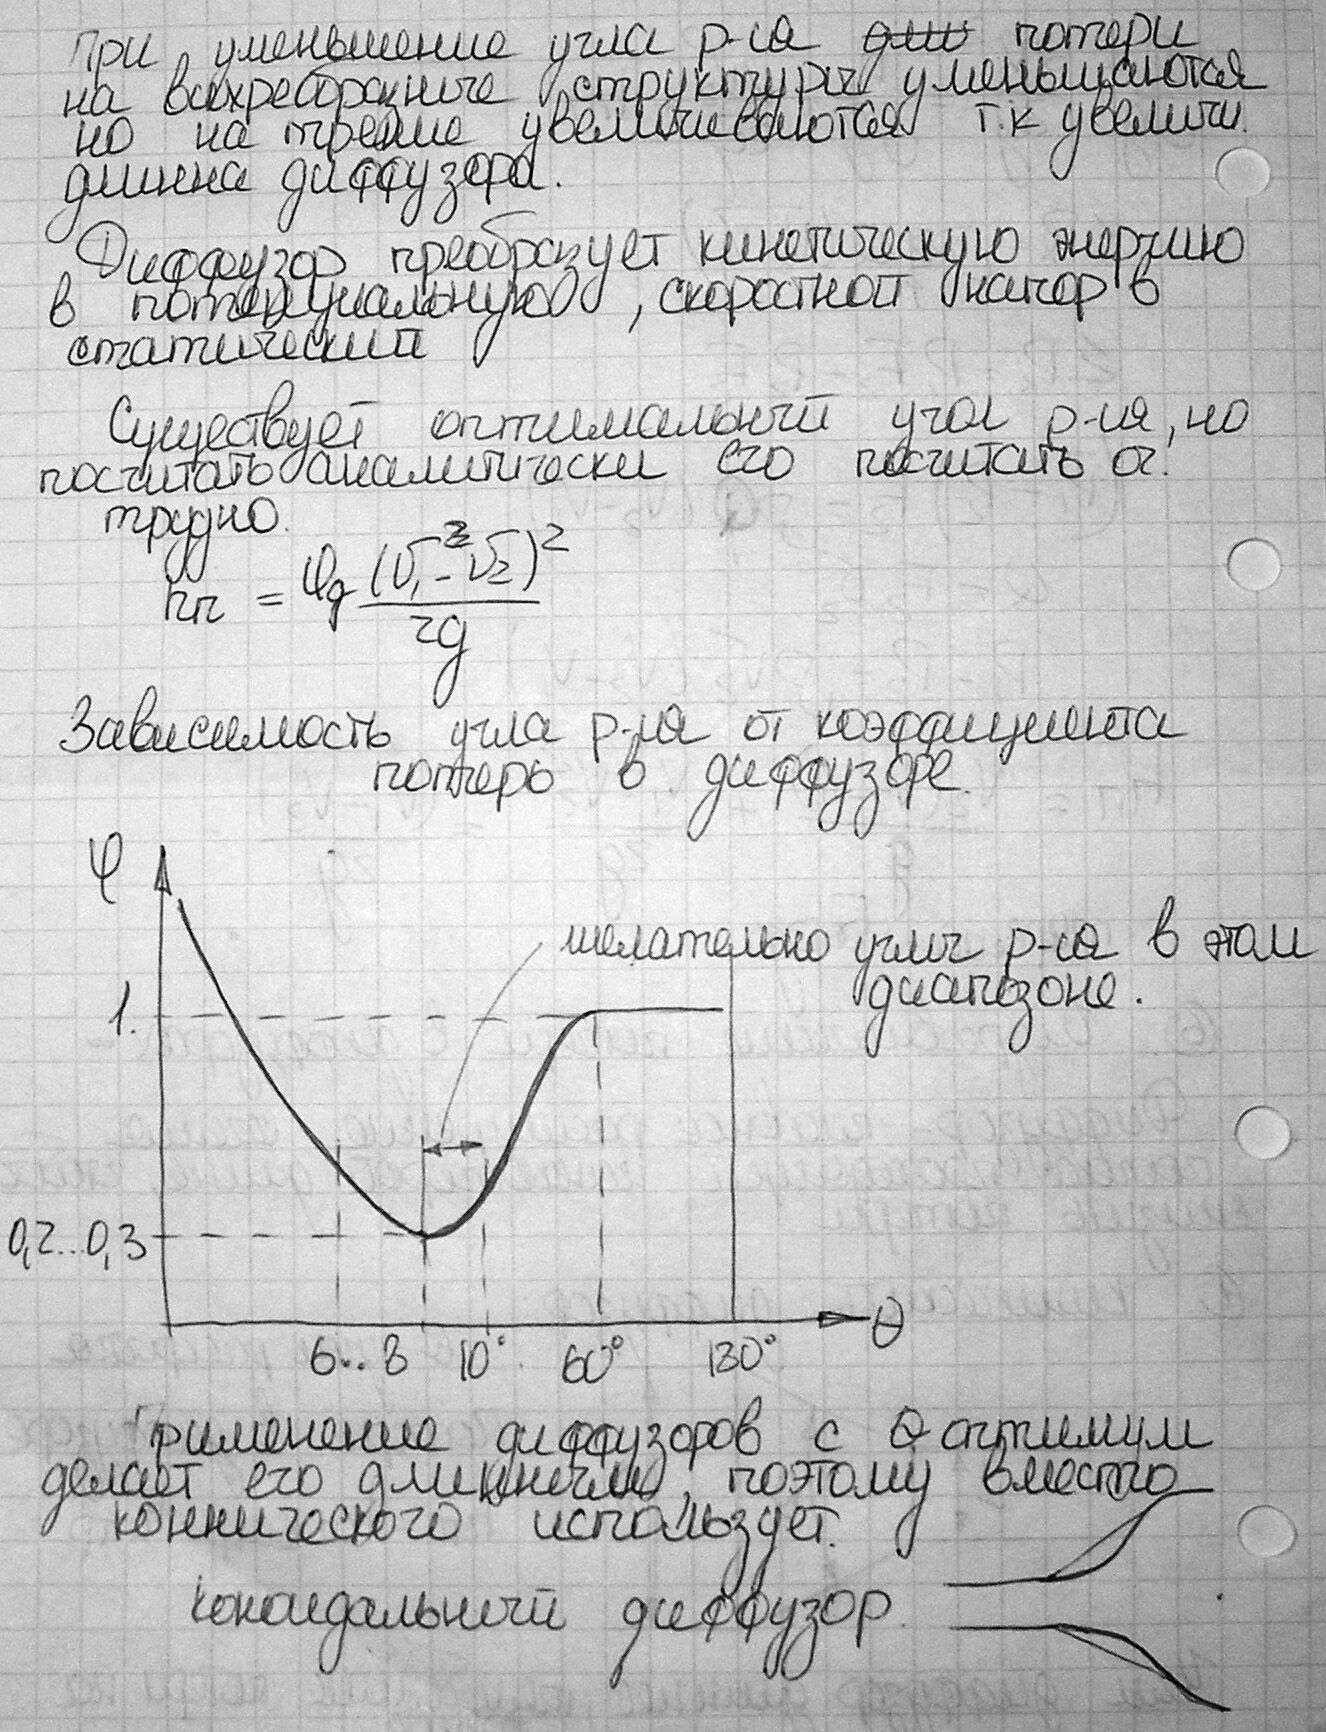 При уменьшение угла р-ия потери
на вихреобразные структуры уменьшаются
но на трение увеличиваются т.к увеличи.
длинна диффузора.
Диффузор преобразует кинетическую энергию
в потенциальную, скоростной напор в
статический
Существует оптимальный угол р-ия, но
посчитать аналитически его посчитать оч.
трудно.
hп = φд (V₁ - V₂)² / 2g
Зависимость угла р-ия от коэффициента
потерь в диффузоре.
φ
желательно углы р-ия в этом
диапозоне.
1.
0,2...0,3
6.. 8 10° 60° 180° θ
Применение диффузоров с θ оптимум
делает его длинным, поэтому вместо
коннического использует.
коноидальный диффузор